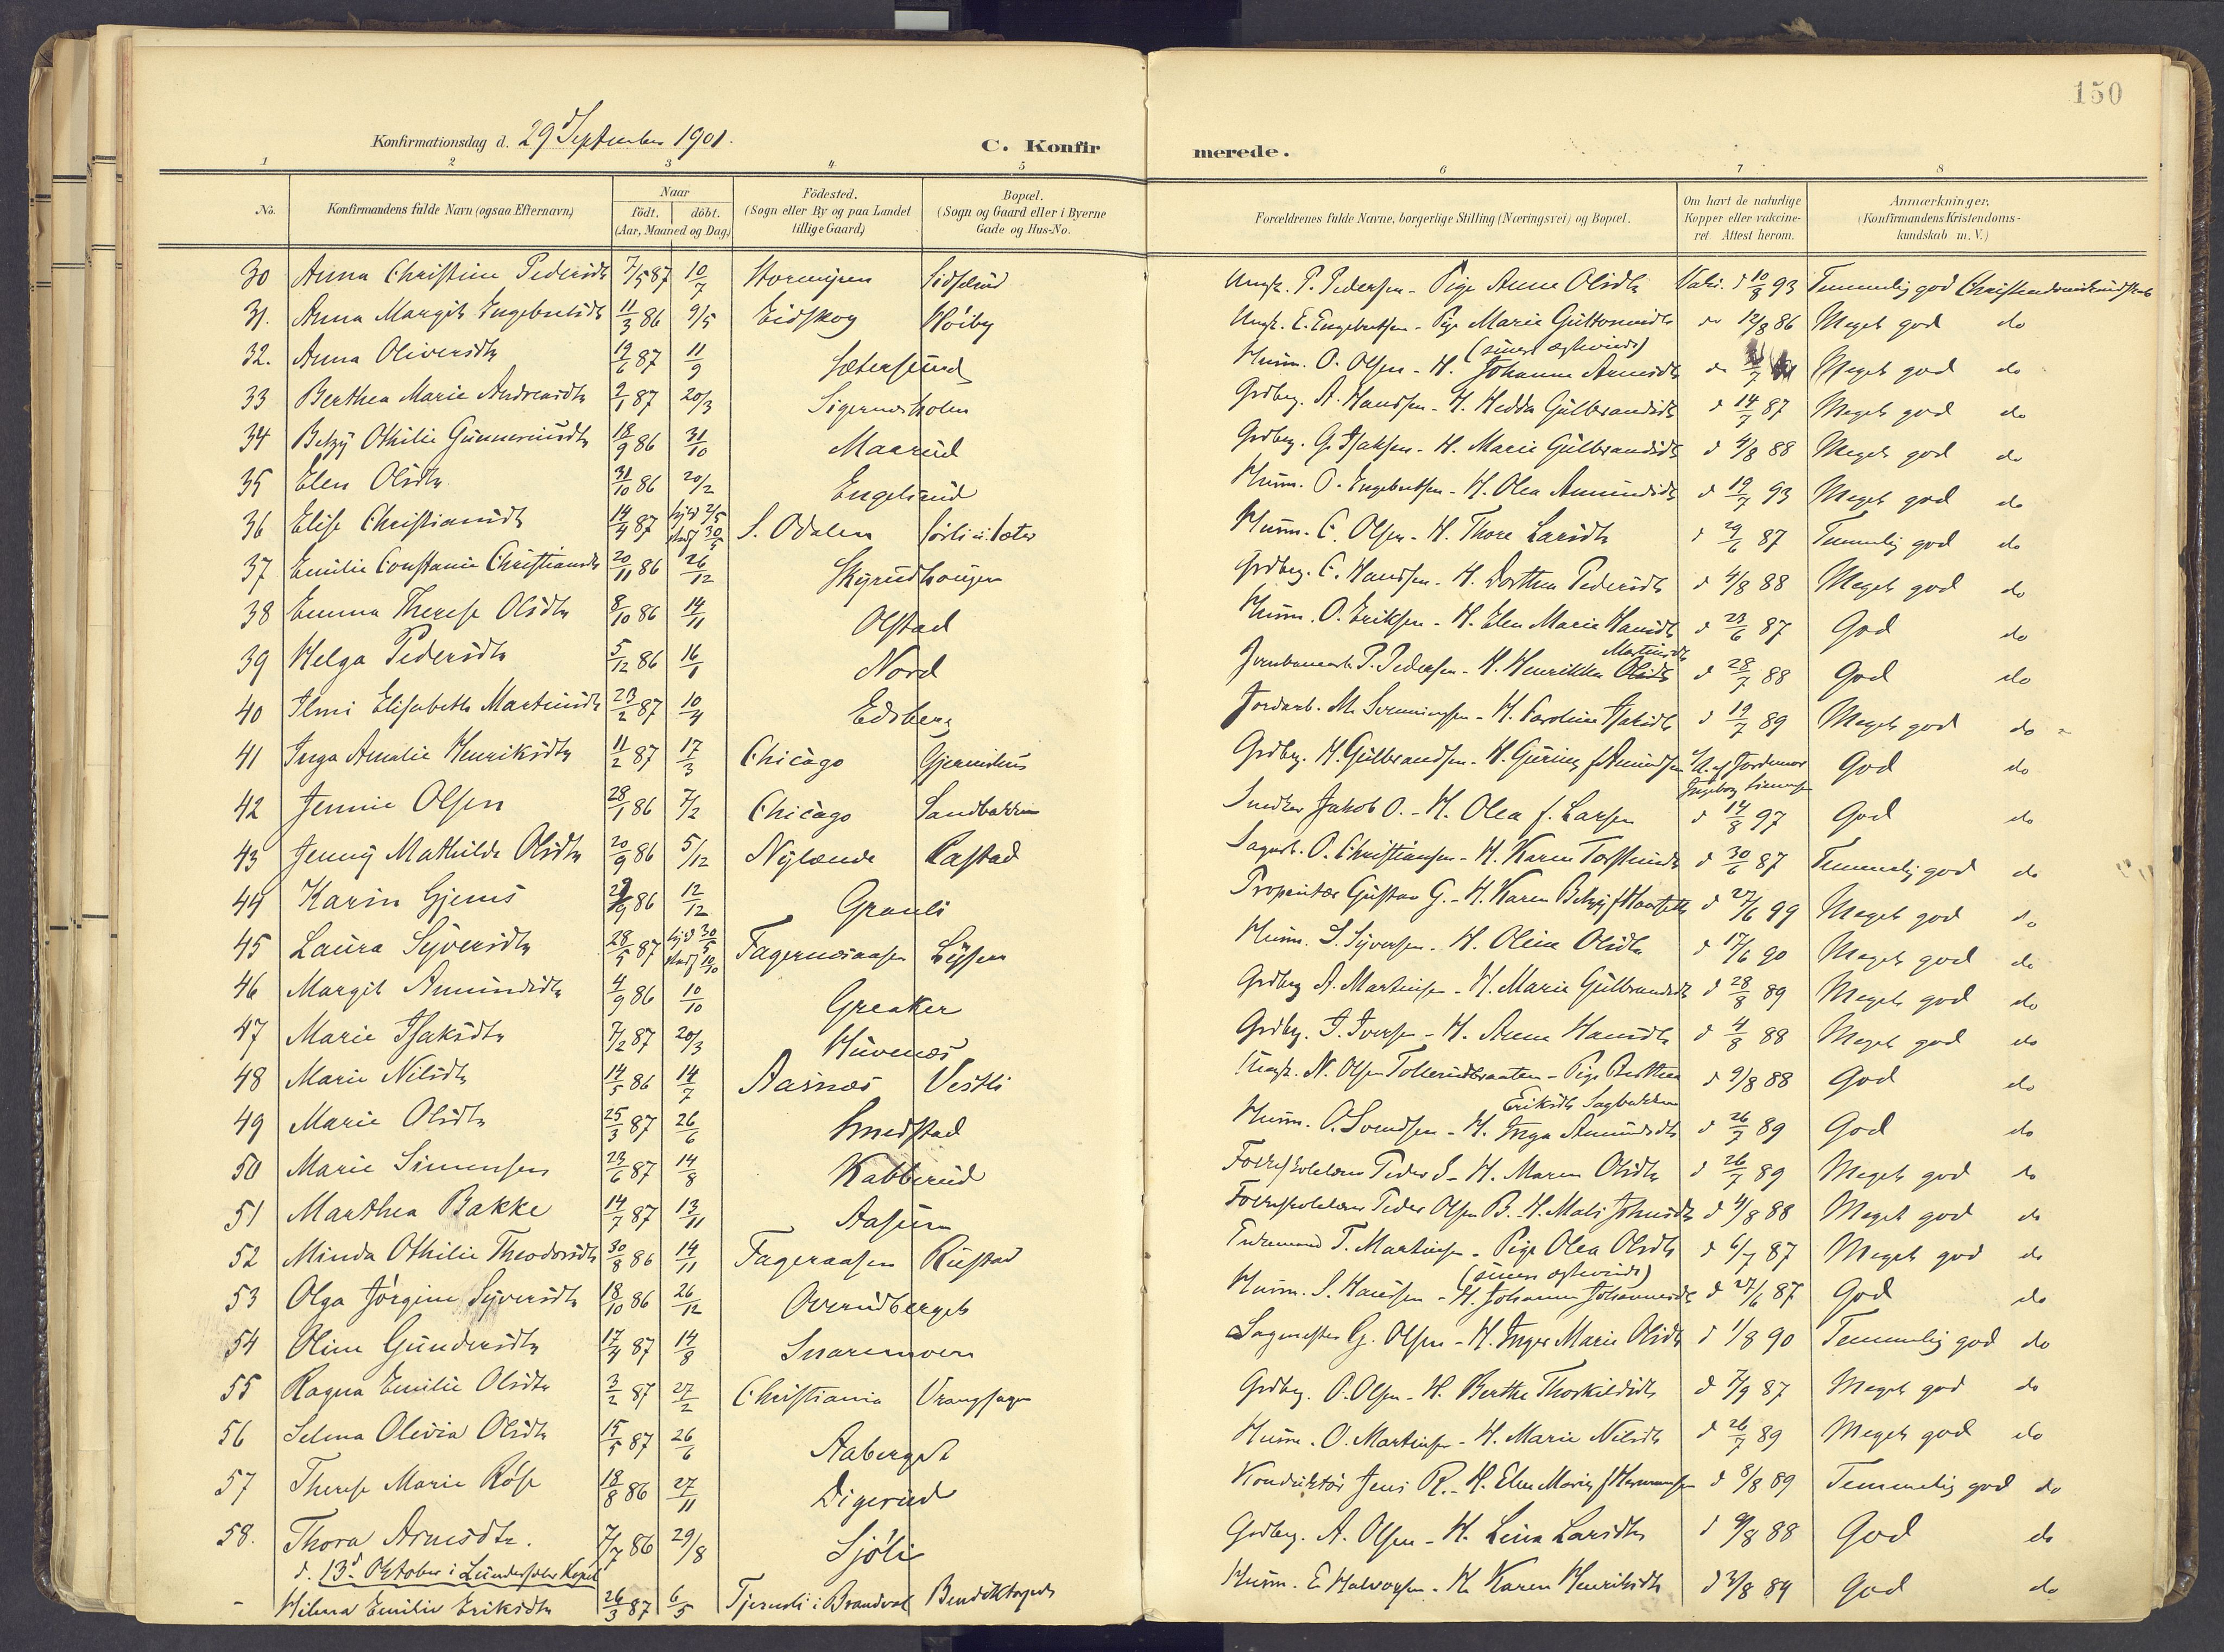 150
Konfirmationsdag d. 29d September 1901.
C. Konfir merede.
1 2 3 4 5 6 7 8
No. Konfirmandens fulde Navn (ogsaa Efternavn) Naar födt. döbt. (Aar, Maaned og Dag) Födested. (Sogn eller By og paa Landet tillige Gaard) Bopæl. (Sogn og Gaard eller i Byerne Gade og Hus-No. Forældrenes fulde Navne, borgerlige Stilling (Næringsvei) og Bopæl. Om havt de naturlige Kopper eller vakcineret Attest herom. Anmærkninger, (Konfirmandens Kristendomskundskab m. V.)
30 Anna Christine Pedersdtr 7/5 87 10/7 Ungk. P. Pedersen - Pige Anne Olsdtr Vakc. d 10/8 93 Temmelig god Christendomskundskab
31. Anna Margit Engebretsdtr 11/3 86 9/5 Eidskog Höiby Ungk. E. Engebretsen - Pige Marie Guttormsdtr do 12/8 86 Meget god do
32. Anna Oliversdtr 12/6 87 11/9 Sætersund Husm. O. Olsen - H. Johanne Arnesdtr Meget god do
33 Berthea Marie Andreasdtr 2/1 87 20/3 Sigernesholen Grdbrg. A. Hansen - H. Hedda Gulbrandsdtr d 14/7 87 Meget god do
34 Betzy Othilie Gunneriusdtr 18/9 86 31/10 Maarud Grdbrg. G. Isaksen - H. Marie Gulbrandsdtr d 4/8 88 Meget god do
35 Elen Olsdtr 31/10 86 20/2 Engelsrud Husm. O. Engebretsen - H. Olea Amundsdtr d 19/7 93 Meget god do
36 Elise Christiansdtr 14/4 87 hjd 2/5 stadf 30/5 S. Odalen Husm. C. Olsen - H. Thore Larsdtr d 29/6 87 Temmelig god do
37 Emilie Constance Christiansdtr 20/11 86 26/12 Skyrudhougen Grdbrg. C. Hansen - H. Dorthea Pedersdtr d 4/8 88 Meget god do
38 Emma Therese Olsdtr 8/10 86 14/11 Olstad Husm. O. Eriksen - H. Elen Marie Hansdtr d 23/6 87 God do
39 Helga Pedersdtr 5/12 86 16/1 Nord P. Pedersen - H. Henrikka Olsdtr d 28/7 88 God do
40 Ilmi Elisabeth Martinsdtr 23/2 87 10/4 Edsberg Jordarb. M. - H. Caroline Isaksdtr d 19/7 89 Meget god do
41 Inga Amalie Henriksdtr 11/2 87 17/3 Chicago Grdbrg. H. Gulbrandsen - H. f. Amundsen God do
42 Jennie Olsen 28/1 86 7/2 Chicago Sandbakken Snedker Jakob O. - H. Olea f. Larsen d 14/8 97 God do
43 Jenny Mathilde Olsdtr 20/9 86 5/12 Nylænde Rastad Sagarb. O. Christiansen - H. Karen d 30/6 87 Temmelig god do
44 Karin Gjems 86 12/12 Granli Proprietær Gustav G. - H. Karen Betzy d 27/6 99 Meget god do
45 Laura Syversdtr 28/5 87 hjd 30/5 stadf 10/10 Fagernesaasen Husm. S. Syversen - H. Oline Olsdtr d 17/6 90 Meget god do
46 Margit Amundsdtr 4/9 86 10/10 Greaker Grdbrg A. Martinsen - H. Marie Gulbrandsdtr d 28/8 89 Meget god do
47 Marie Isaksdtr 7/2 87 20/3 Huvenes Grdbrg. I. Iversen - H. Anne Hansdtr d 4/8 88 Meget god do
48 Marie Nilsdtr 14/5 86 14/7 Aasnæs Vestli Ungk. N. Olsen Tollerudbraaten - Pige Berthea Eriksdtr Sagbakken d 9/8 88 God do
49 Marie Olsdtr 25/3 87 26/6 Smedstad Husm. O. Svendsen - H. Inga Amundsdtr d 26/7 89 God do
50 Marie Simensen 23/6 87 14/8 Kabberud Peder S - H. Maren Olsdtr d 26/7 89 Meget god do
51 Marthea Bakke 14/7 87 13/11 Aasum Peder Olsen B. - H. Mali d 4/8 88 Meget god do
52 Minda Othilie Theodorsdtr 30/8 86 14/11 Fageraasen Rustad T. Martinsen - Pige Olea Olsdtr d 6/7 87 Meget god do
53 Olga Jörgine Syversdtr 18/10 86 26/12 Overudberget Husm. S. Hansen - H. Johanne Johannesdtr d 27/6 87 God do
54 Oline Gundersdtr 17/4 87 14/8 Snaremoen Sagmester G. Olsen - H. Inger Marie Olsdtr d 1/8 90 Temmelig god do
55 Ragna Emilie Olsdtr 3/2 87 27/2 Christiania Vrangsagen Grdbrg. O. Olsen - H. Berthe Thorkildsdtr d 7/9 87 Meget god do
56 Selma Olivia Olsdtr 15/5 87 26/6 Aaberget Husm. O. Martinsen - H. Marie Nilsdtr d 26/7 89 Meget god do
57 Therese Marie Röse 18/8 86 27/11 Digerud Konduktör Jens R. - H. Elen Marie f Hermansen d 8/8 89 Temmelig god do
58. Thora Arnesdtr. 7/7 86 29/8 Sjöli Grdbrg. A. Olsen - H. Lina Larsdtr d 9/8 88 God do
d. 13d Oktober i Lundersæter Kapel
- Hilma Emilie Eriksdtr 26/3 87 6/5 i Brandval Husm. E Halvorsen - H. Karen Henriksdtr d 3/8 89 God do